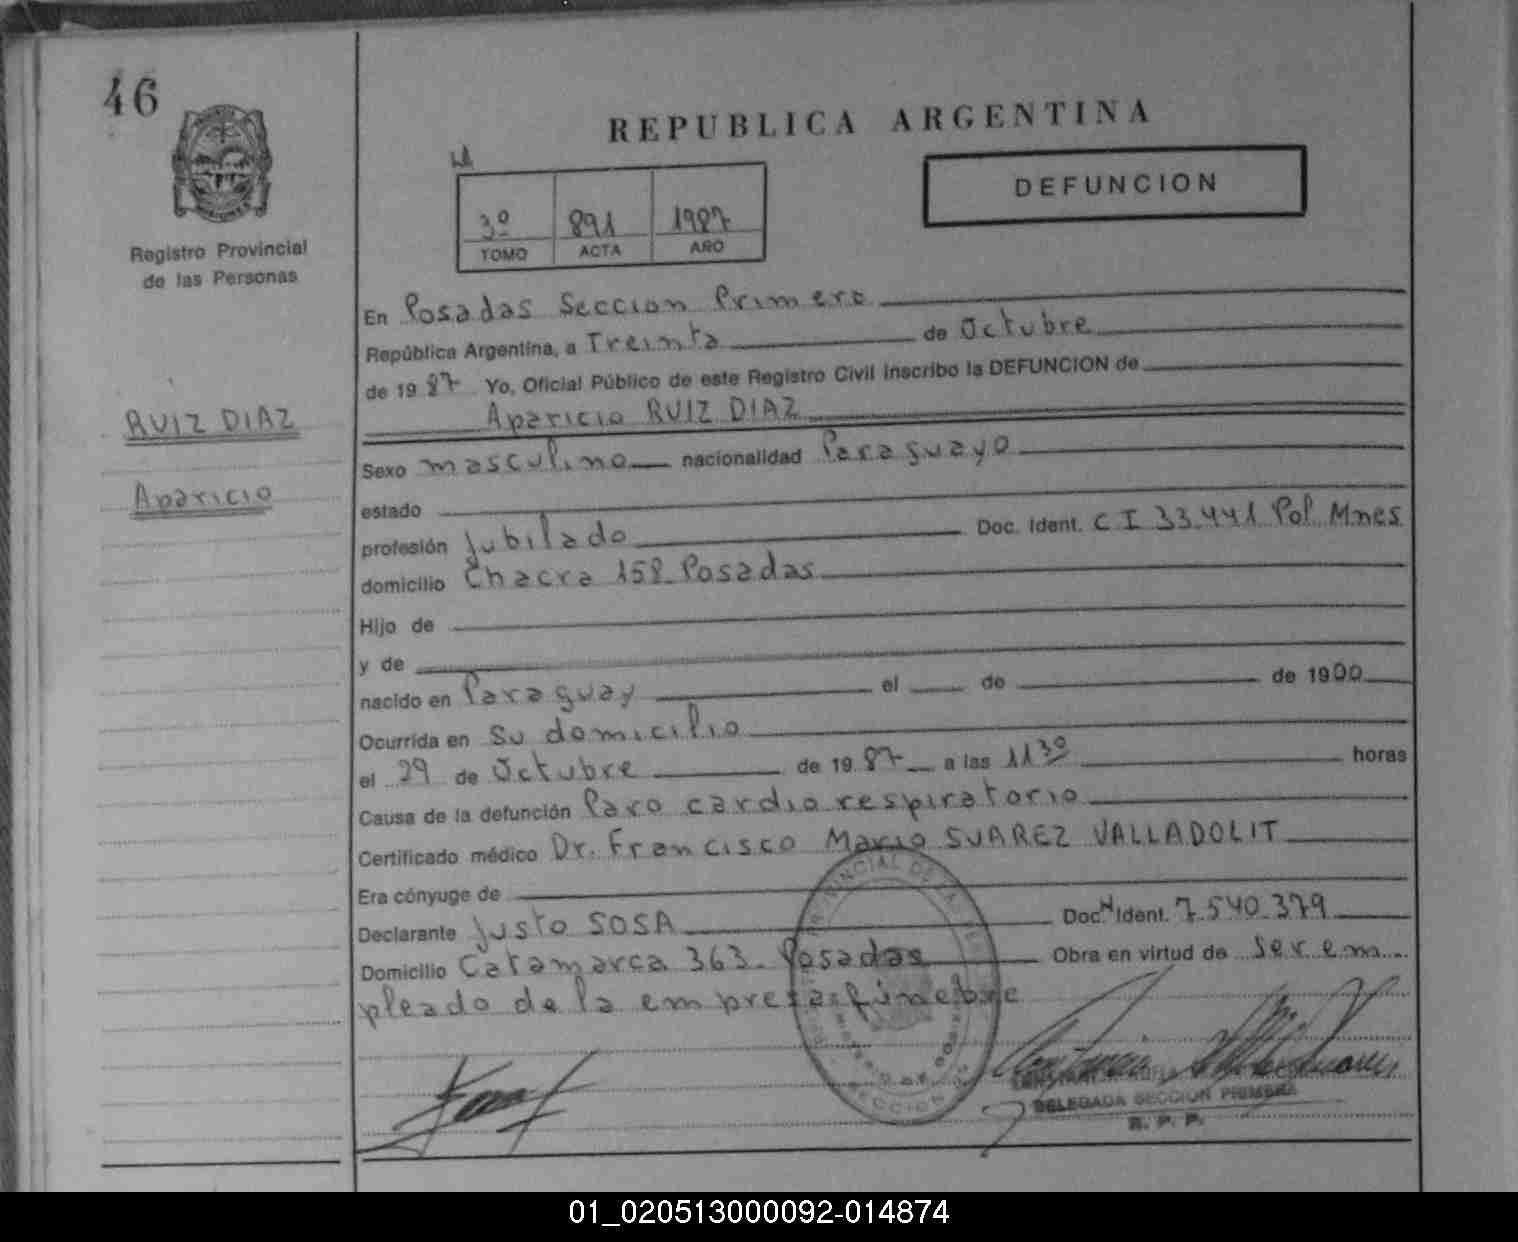 46
REPUBLICA ARGENTINA
DEFUNCION
3º 891 1987
TOMO ACTA AÑO
Registro Provincial
de las Personas
RUIZ DIAZ
Aparicio
En Posadas Seccion Primero
República Argentina, a Treinta de Octubre
de 1987 Yo, Oficial Público de este Registro Civil inscribo la DEFUNCION de
Aparicio RUIZ DIAZ
Sexo masculino nacionalidad Paraguayo
estado
profesión Jubilado Doc. Ident. C I 33.441 Pol. Mnes
domicilio Chacra 158 - Posadas
Hijo de
y de
nacido en Paraguay el de de 1900
Ocurrida en Su domicilio
el 29 de Octubre de 1987 a las 11 30 horas
Causa de la defunción Paro cardio respiratorio
Certificado médico Dr. Francisco Mario SUAREZ VALLADOLIT
Era cónyuge de
Declarante Justo SOSA Doc. Ident. 7.540.379
Domicilio Catamarca 363 - Posadas Obra en virtud de Ser em
pleado de la empresa fúnebre
DELEGADA SECCION PRIMERA
R. P. P.
01_020513000092-014874